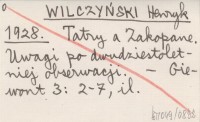 WILCZYŃSKI Henryk
1928. Tatry a Zakopane.
Uwagi po dwudziestolet-
niej obserwacji. - Gie-
wont 3: 2-7, il.